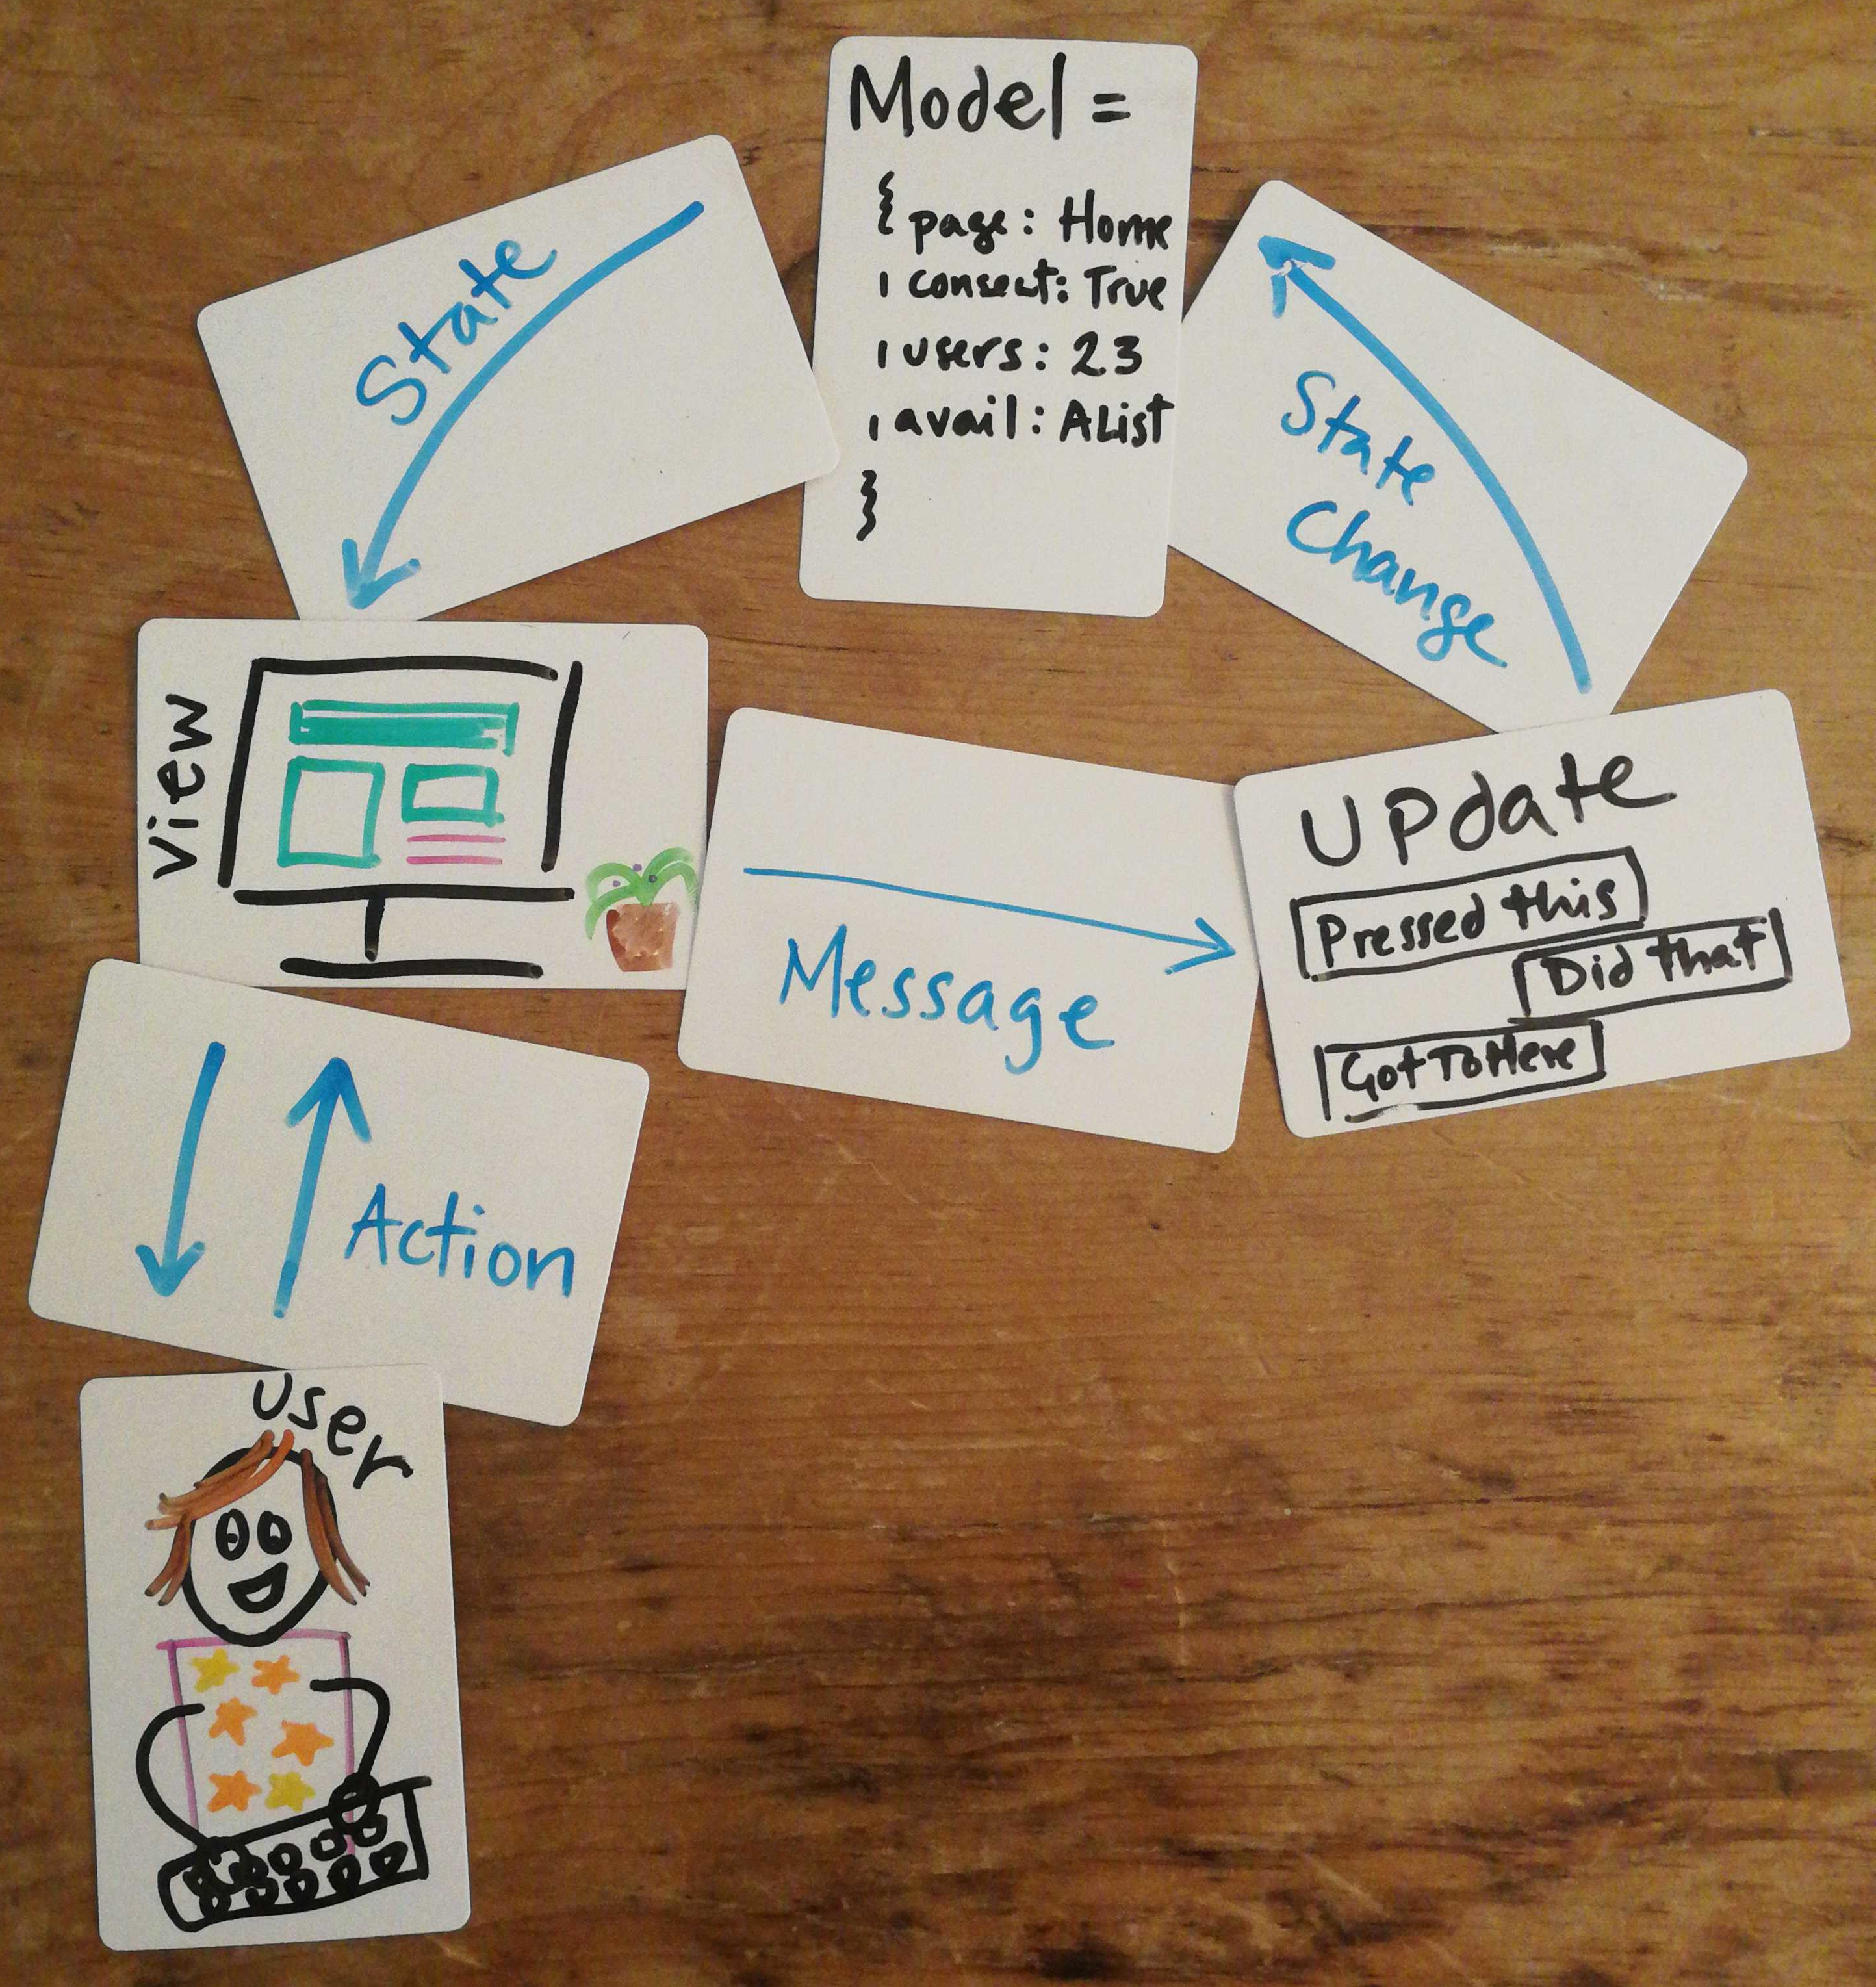 Model =
{ page: Home
, consent: True
, users: 23
, avail: AList
}
State
State
Change
View
Message
Update
Pressed this
Did that
GotToHere
Action
User